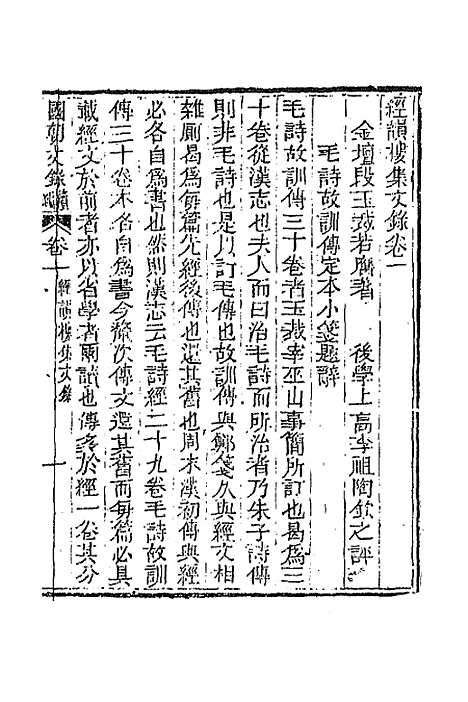 經韻樓集文錄卷一
金壇段玉裁若膺著 後學上高李祖陶欽之評
毛詩故訓傳定本小箋題辭
毛詩故訓傳三十卷者玉裁宰巫山事簡所訂也曷爲三
十卷從漢志也夫人而曰治毛詩而所治者乃朱子詩傳
則非毛詩也是以訂毛傳也故訓傳與鄭箋久與經文相
雜厕曷爲每篇先經後傳也還其舊也周末漢初傳與經
必各自爲書也然則漢志云毛詩經二十九卷毛詩故訓
傳三十卷本各自爲書今釐次傳文還其舊而每篇必具
載經文於前者亦以省學者兩讀也傳多於經一卷其分
國朝文錄續編 卷一 經韻樓集文錄 一